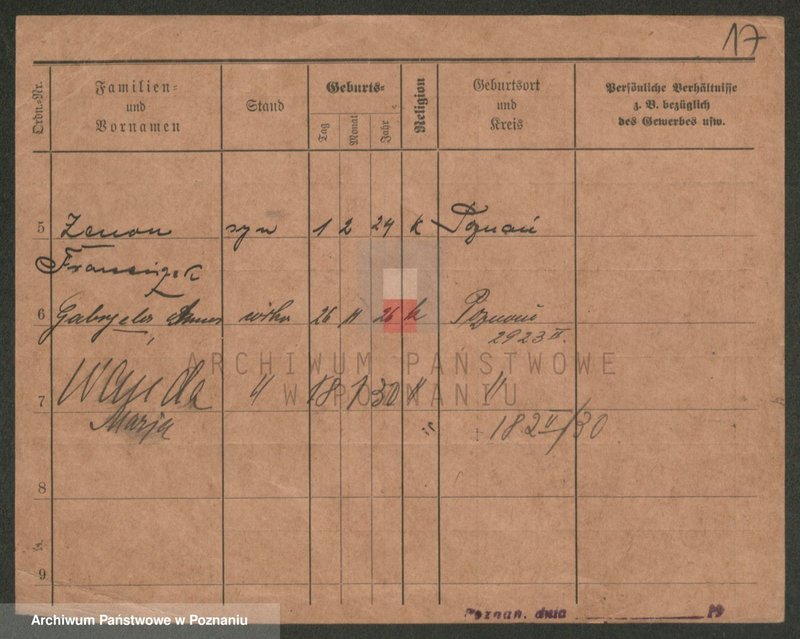 17
Ordn.-Nr.
Familien-
und
Vornamen
Stand
Geburts-
Tag
Monat
Jahr
Religion
Geburtsort
und
Kreis
Persönliche Verhältnisse
z. B. bezüglich
des Gewerbes usw.
5 Zenon syn 1 2 24 k Poznań
Franciszek
6 Gabryela córka 26 11 26 k Poznań
2923 II.
ARCHIWUM PAŃSTWOWE
W POZNANIU
7 Wanda " 18 1 30 k "
Marja
+ 18 2 II/30
8
9
Poznań, dnia 19
Archiwum Państwowe w Poznaniu